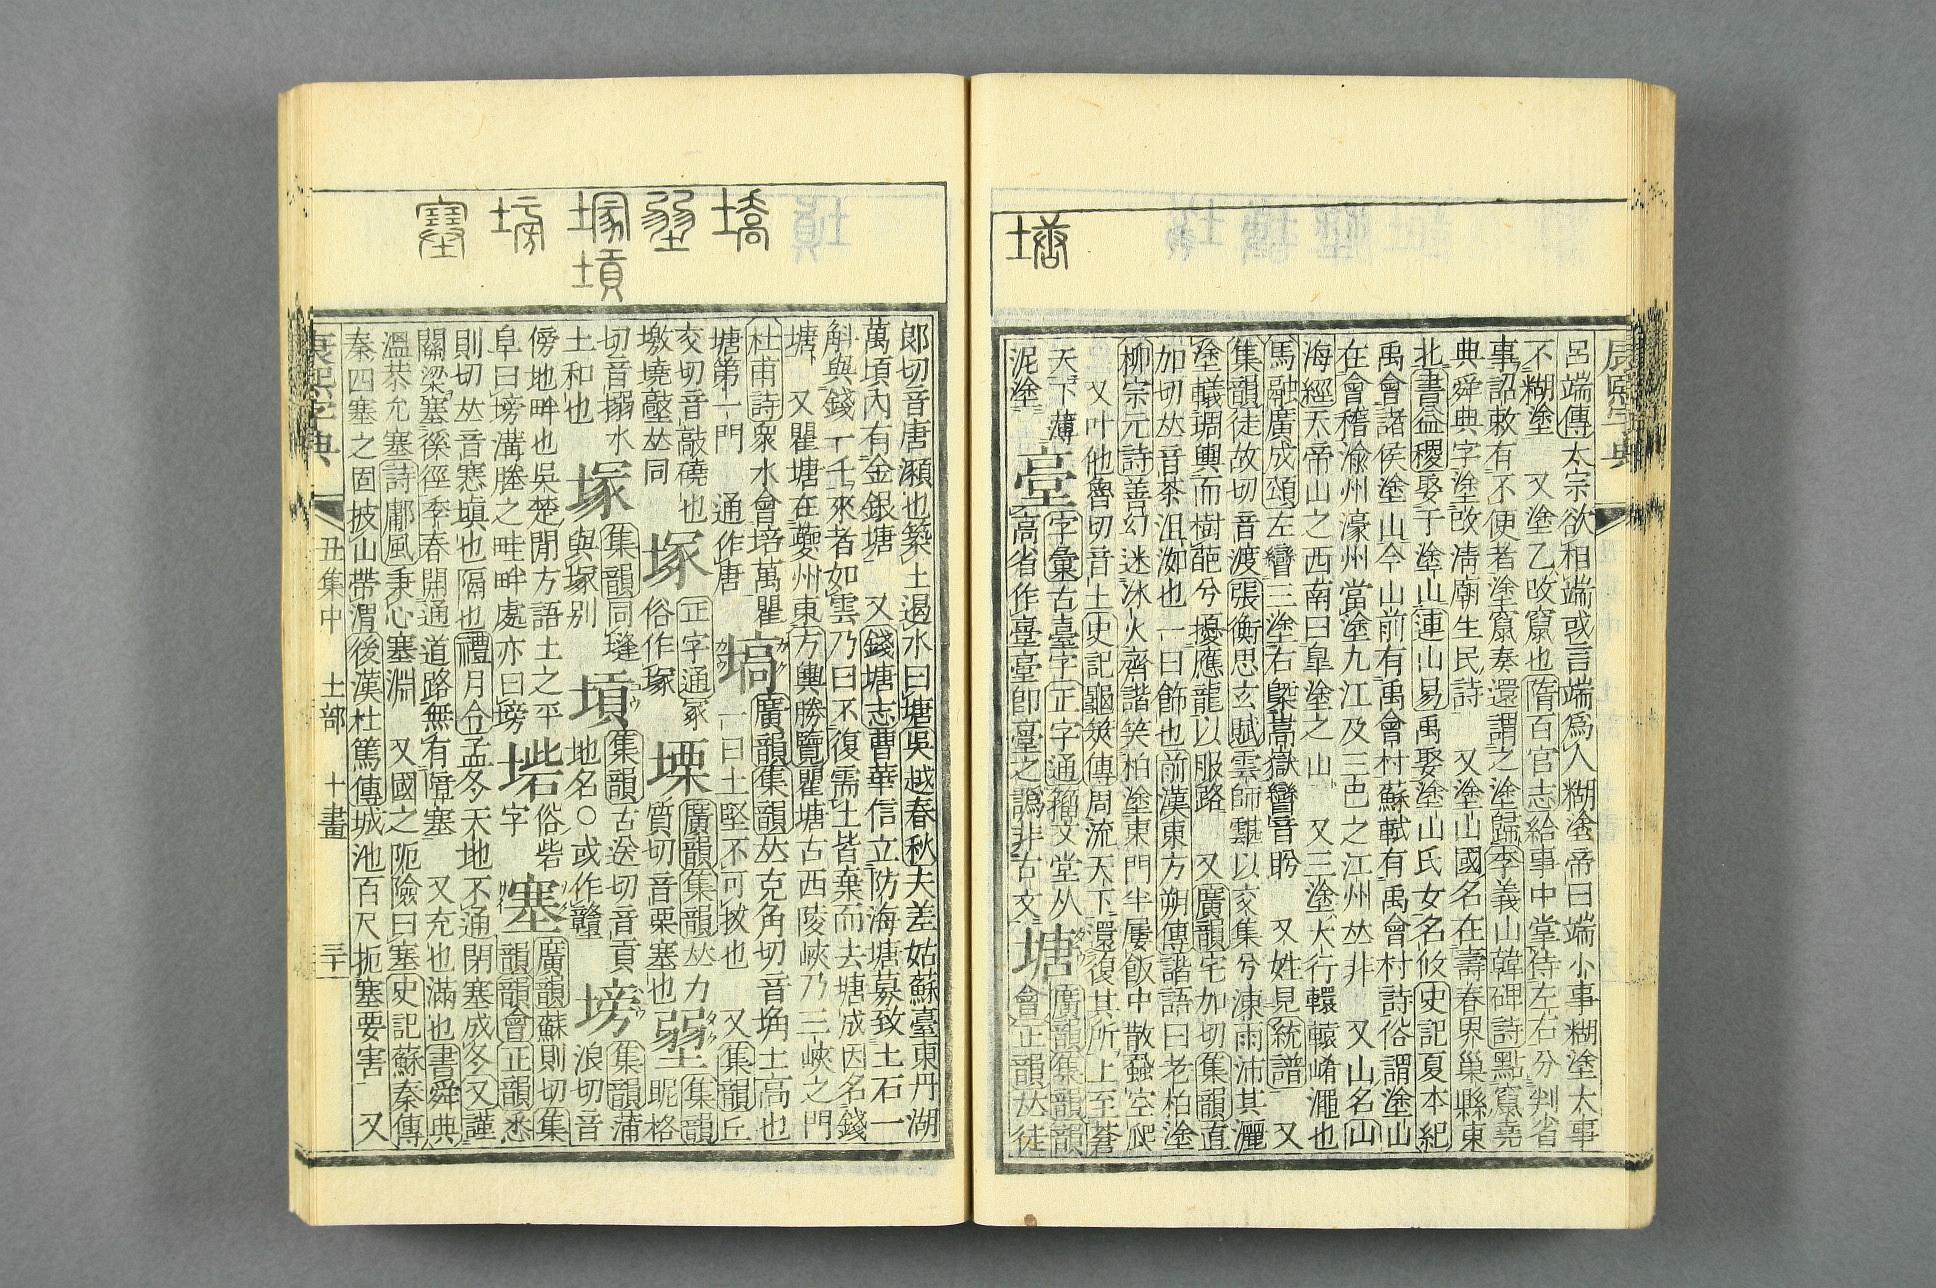 呂端傳太宗欲相端或言端爲人糊塗帝曰端小事糊塗大事
不糊塗 又塗乙改竄也隋百官志給事中掌侍左右分判省
事詔敕有不便者塗竄奏還謂之塗歸李義山韓碑詩點竄堯
典舜典字塗改淸廟生民詩 又塗山國名在壽春界巢縣東
北書益稷娶于塗山連山易禹娶塗山氏女名攸史記夏本紀
禹會諸侯塗山今山前有禹會村蘇軾有禹會村詩俗謂塗山
在會稽渝州濠州當塗九江及三邑之江州𠀤非 又山名山
海經天帝山之西南曰皇塗之山 又三塗大行轘轅崤澠也
馬融廣成頌左巒三塗右槩嵩嶽巒音眄 又姓見統譜 又
集韻徒故切音渡張衡思玄賦雲師䨴以交集兮凍雨沛其灑
塗轙琱輿而樹葩兮擾應龍以服路 又廣韻宅加切集韻直
加切𠀤音茶沮洳也一曰飾也前漢東方朔傳諧語曰老柏塗
柳宗元詩善幻迷冰火齊諧笑柏塗東門半屢飯中散蝨空爬
又叶他魯切音土史記龜筴傳周流天下還復其所上至蒼
天下薄
泥塗
臺
字彙古臺字正字通籀文堂从
高省作臺臺卽臺之譌非古文
塘
廣韻集韻韻
會正韻𠀤徒
塘
郞切音唐灝也築土遏水曰塘吳越春秋夫差姑蘇臺東丹湖
萬頃內有金銀塘 又錢塘志曹華信立防海塘募致土石一
斛與錢一千來者如雲乃曰不復需土皆棄而去塘成因名錢
塘 又瞿塘在夔州東方輿勝覽瞿塘古西陵峽乃三峽之門
杜甫詩衆水會培萬瞿
塘第一門 通作唐
塙
廣韻集韻𠀤克角切音埆土高也
一曰土堅不可拔也 又集韻丘
交切音敲磽也
墩墝敲𠀤同
塚
正字通冢
俗作塚
塛
廣韻集韻𠀤力
質切音栗塞也
𡏇
集韻昵格
切音搦水
土和也
塜
集韻同塳
與塚別
塨
集韻古送切音貢
地名○或作贛
塝
集韻蒲
浪切音
傍地畔也吳楚閒方語土之平
阜曰塝溝塍之畦畔處亦曰塝
俗砦
字
塞
廣韻蘇則切集
韻韻會正韻悉
則切𠀤音𡫳塡也隔也禮月令孟冬天地不通閉塞成冬又謹
關梁塞徯徑季春開通道路無有障塞 又充也滿也書舜典
溫恭允塞詩鄘風秉心塞淵 又國之阨險曰塞史記蘇秦傳
秦四塞之固披山帶渭後漢杜篤傳城池百尺扼塞要害 又
康熙字典 丑集中 土部 十畫 三十一